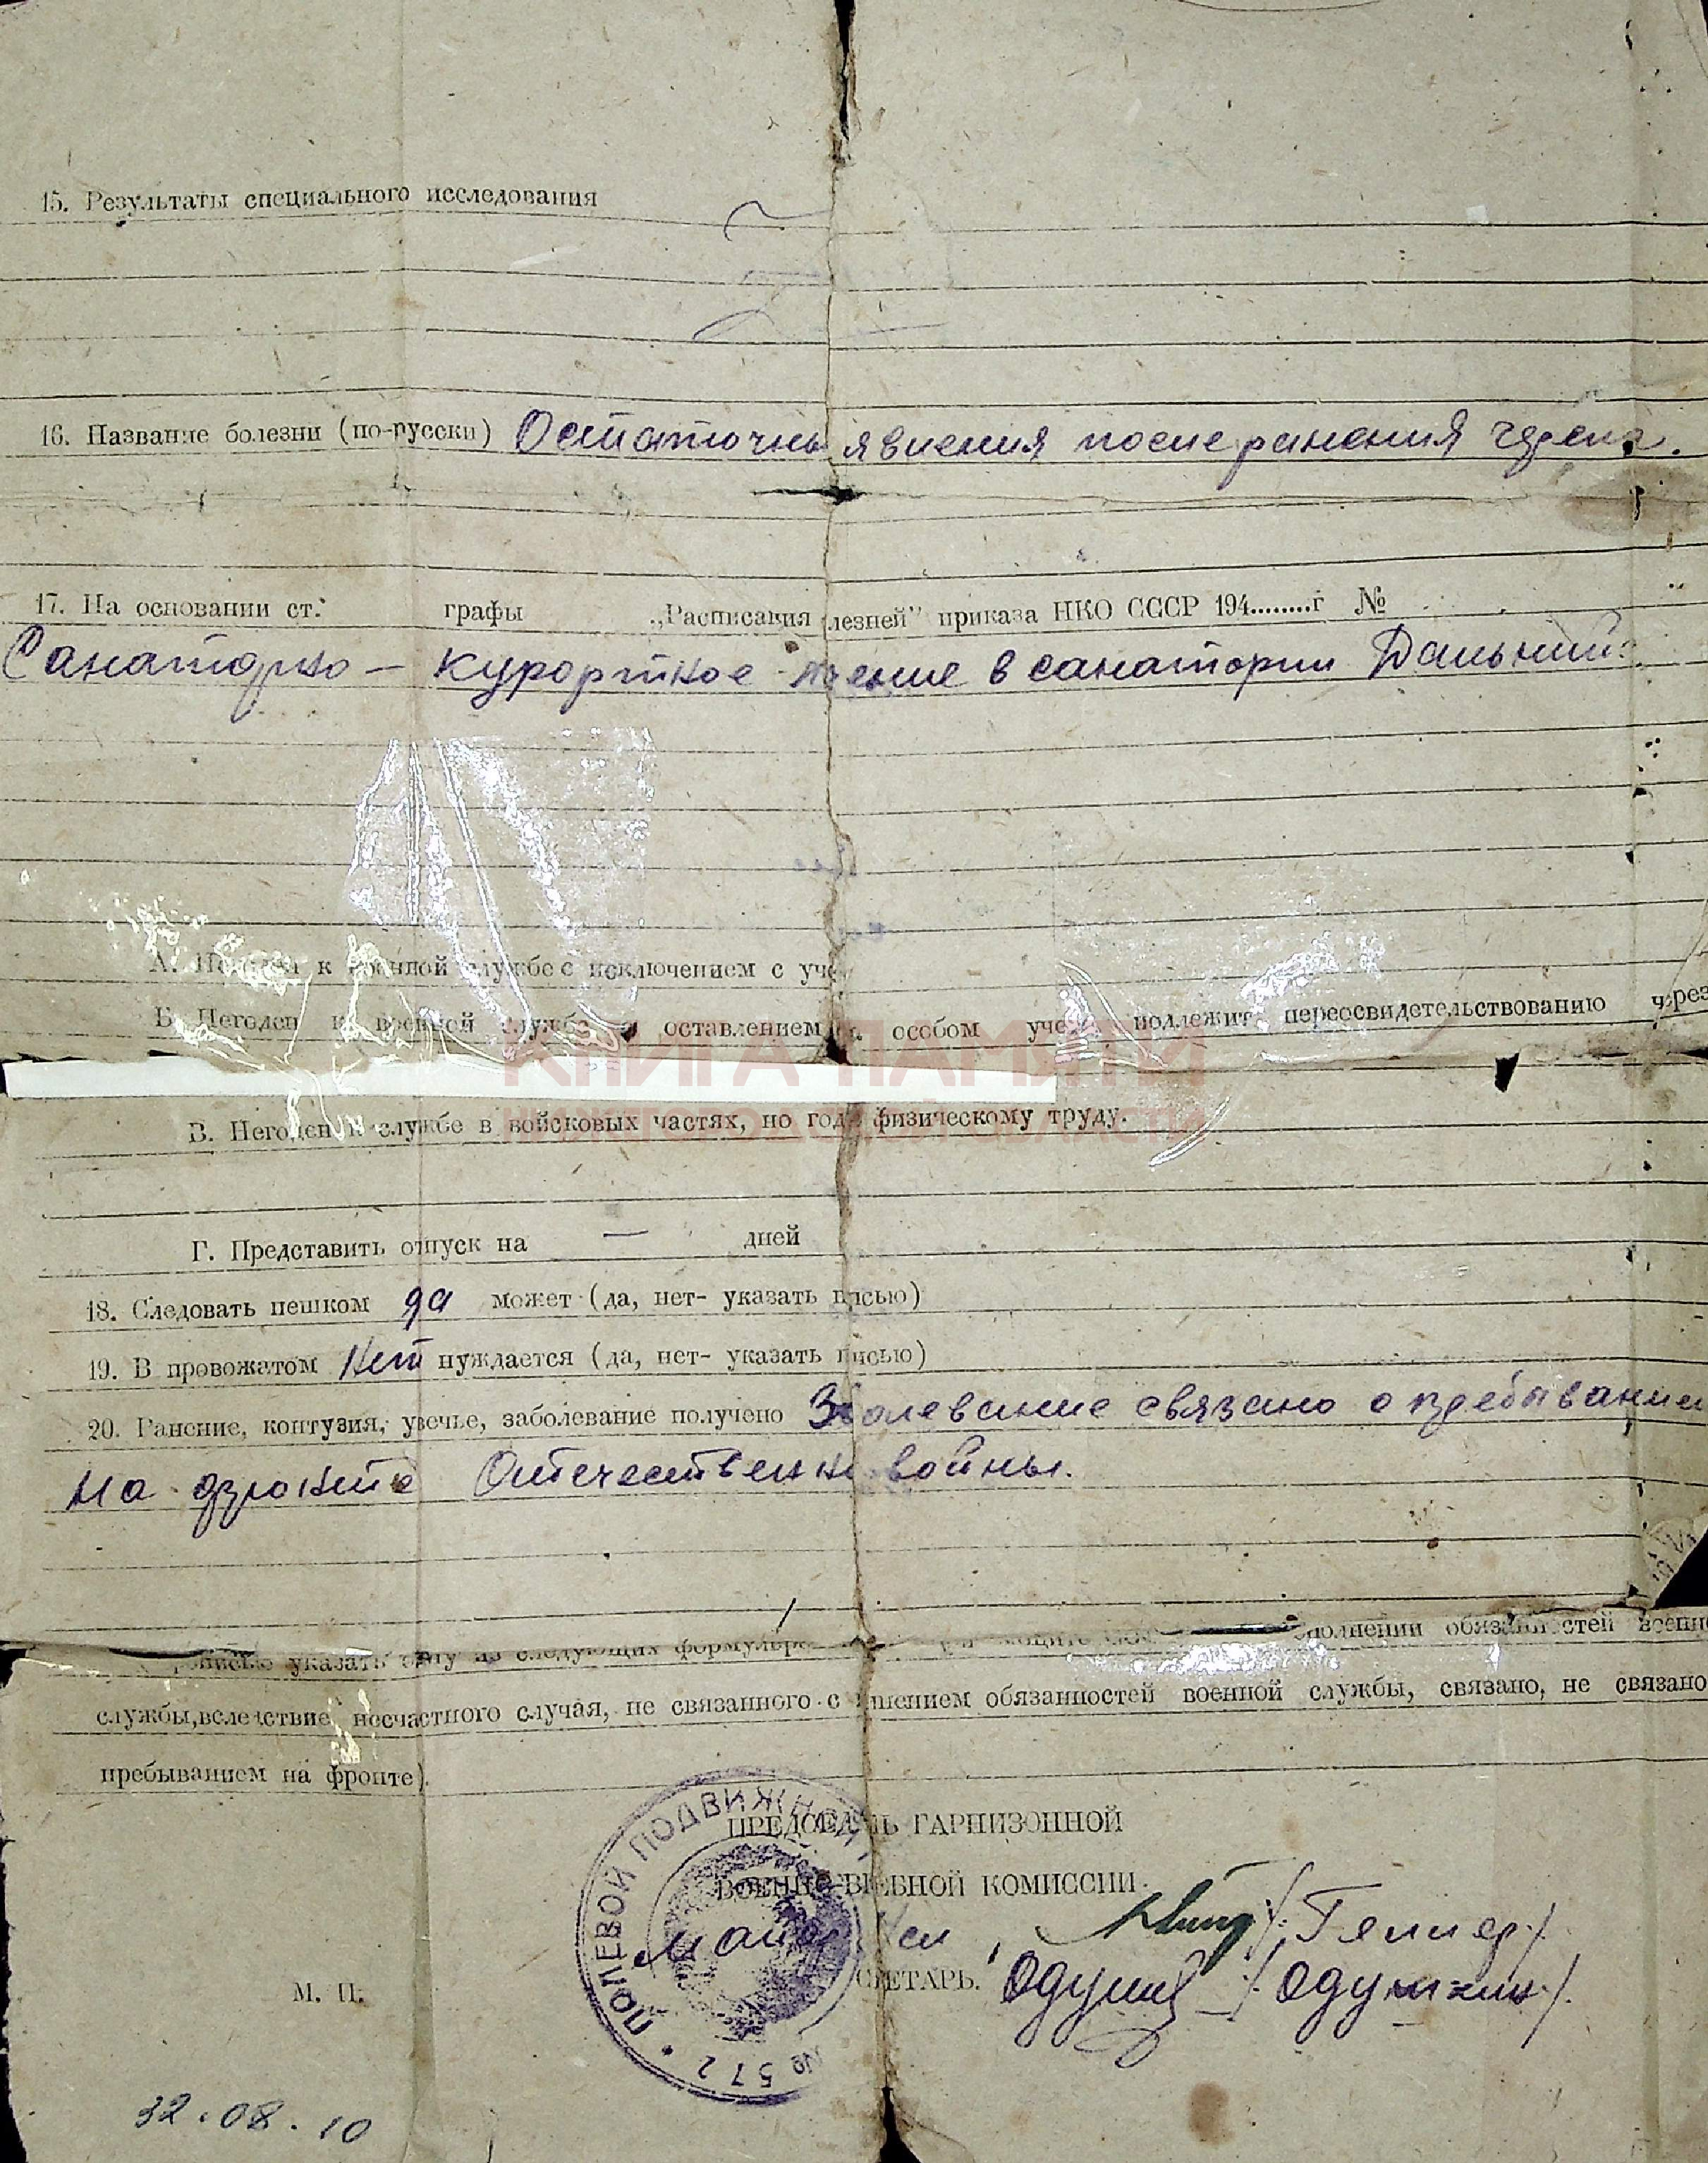 15. Результаты специального исследования
16. Название болезни (по-русски) Остаточны явления после ранения черепа.
17. На основании ст. графы „Расписания лезней" приказа НКО СССР 194........г №
Санаторно — курортное ение в санатории Дальний
А. Негоден к военной службе с исключением с уч
Б. Негоден к военной службе с оставлением особом уче подлежит переосвидетельствованию через
КНИГА ПАМЯТИ
НИЖЕГОРОДСКОЙ ОБЛАСТИ
В. Негоден к службе в войсковых частях, но год физическому труду.
Г. Представить отпуск на — дней
18. Следовать пешком да может (да, нет- указать писью)
19. В провожатом Нет нуждается (да, нет- указать писью)
20. Ранение, контузия, увечье, заболевание получено Заболевание связано с пребыванием
на фронте Отечественн войны.
указать одну из следующих формулиро исполнении обязанностей военно
службы, вследствие несчастного случая, не связанного с нением обязанностей военной службы, связано, не связано
пребыванием на фронте).
ПОЛЕВОЙ ПОДВИЖНОЙ
№ 572
ПРЕДСЕДА ЛЬ ГАРНИЗОННОЙ
ВОЕННО-В ЕБНОЙ КОМИССИИ
М. П.
СЕ ЕТАРЬ.
32.08.10